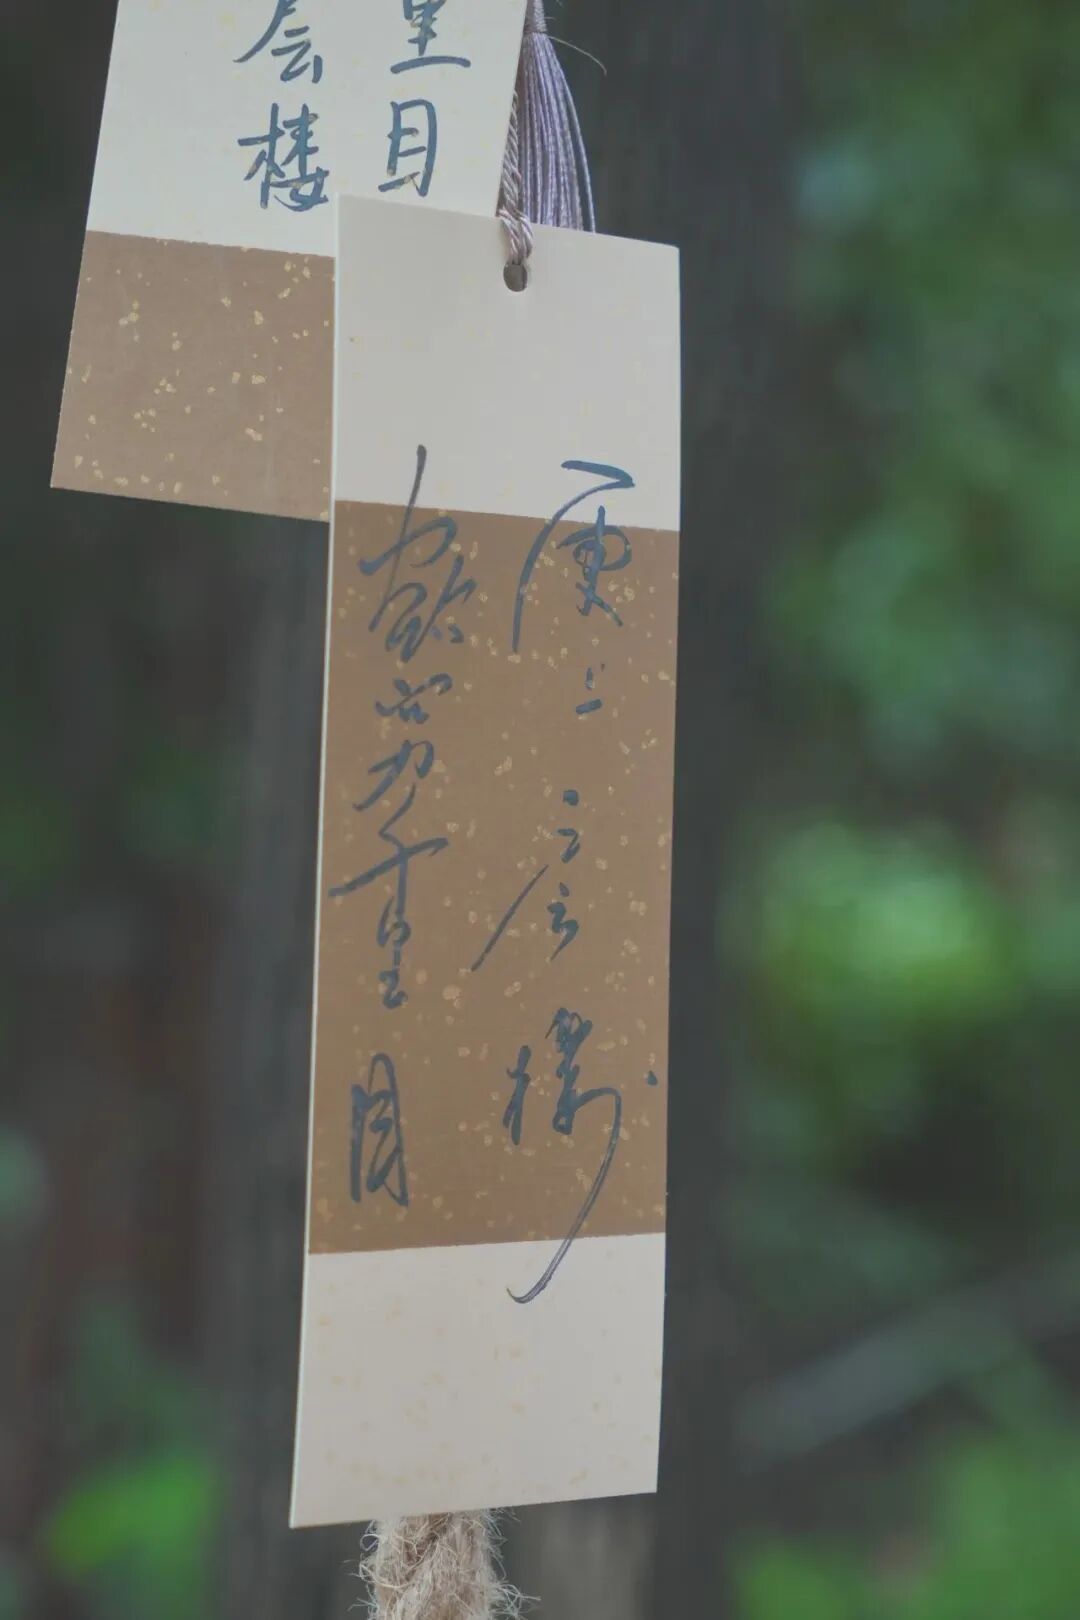 里目
层楼
更上一层楼
欲穷千里目